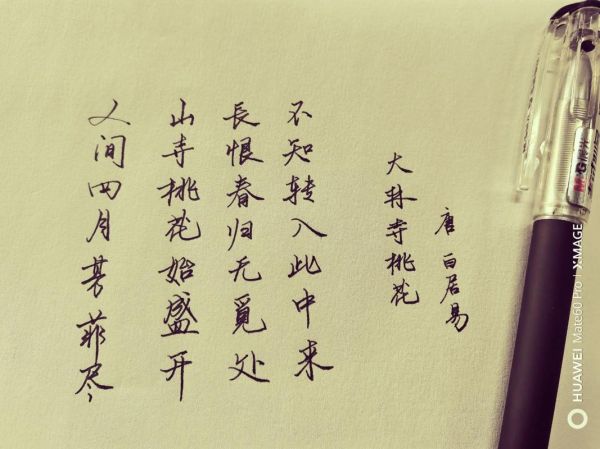 人间四月芳菲尽
山寺桃花始盛开
長恨春归无觅处
不知转入此中来
大林寺桃花
唐 白居易
M&G晨光
HUAWEI Mate60 Pro | XMAGE